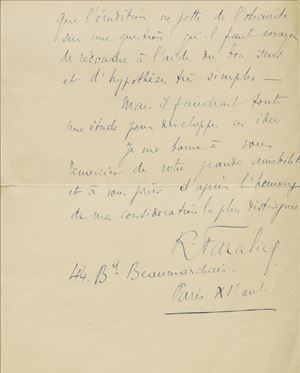 que l'érudition ne jette de l'obscurité
sur une question qu'il faut essayer
de résoudre à l'aide du bon sens
et d'hypothèses très simples —
Mais il faudrait toute
une étude pour développer ces idées.
Je me borne à vous
remercier de votre grande amabilité
et à vous prier d'agréer l'hommage
de ma considération la plus distinguée
44, Bd. Beaumarchais
Paris XIe arrt